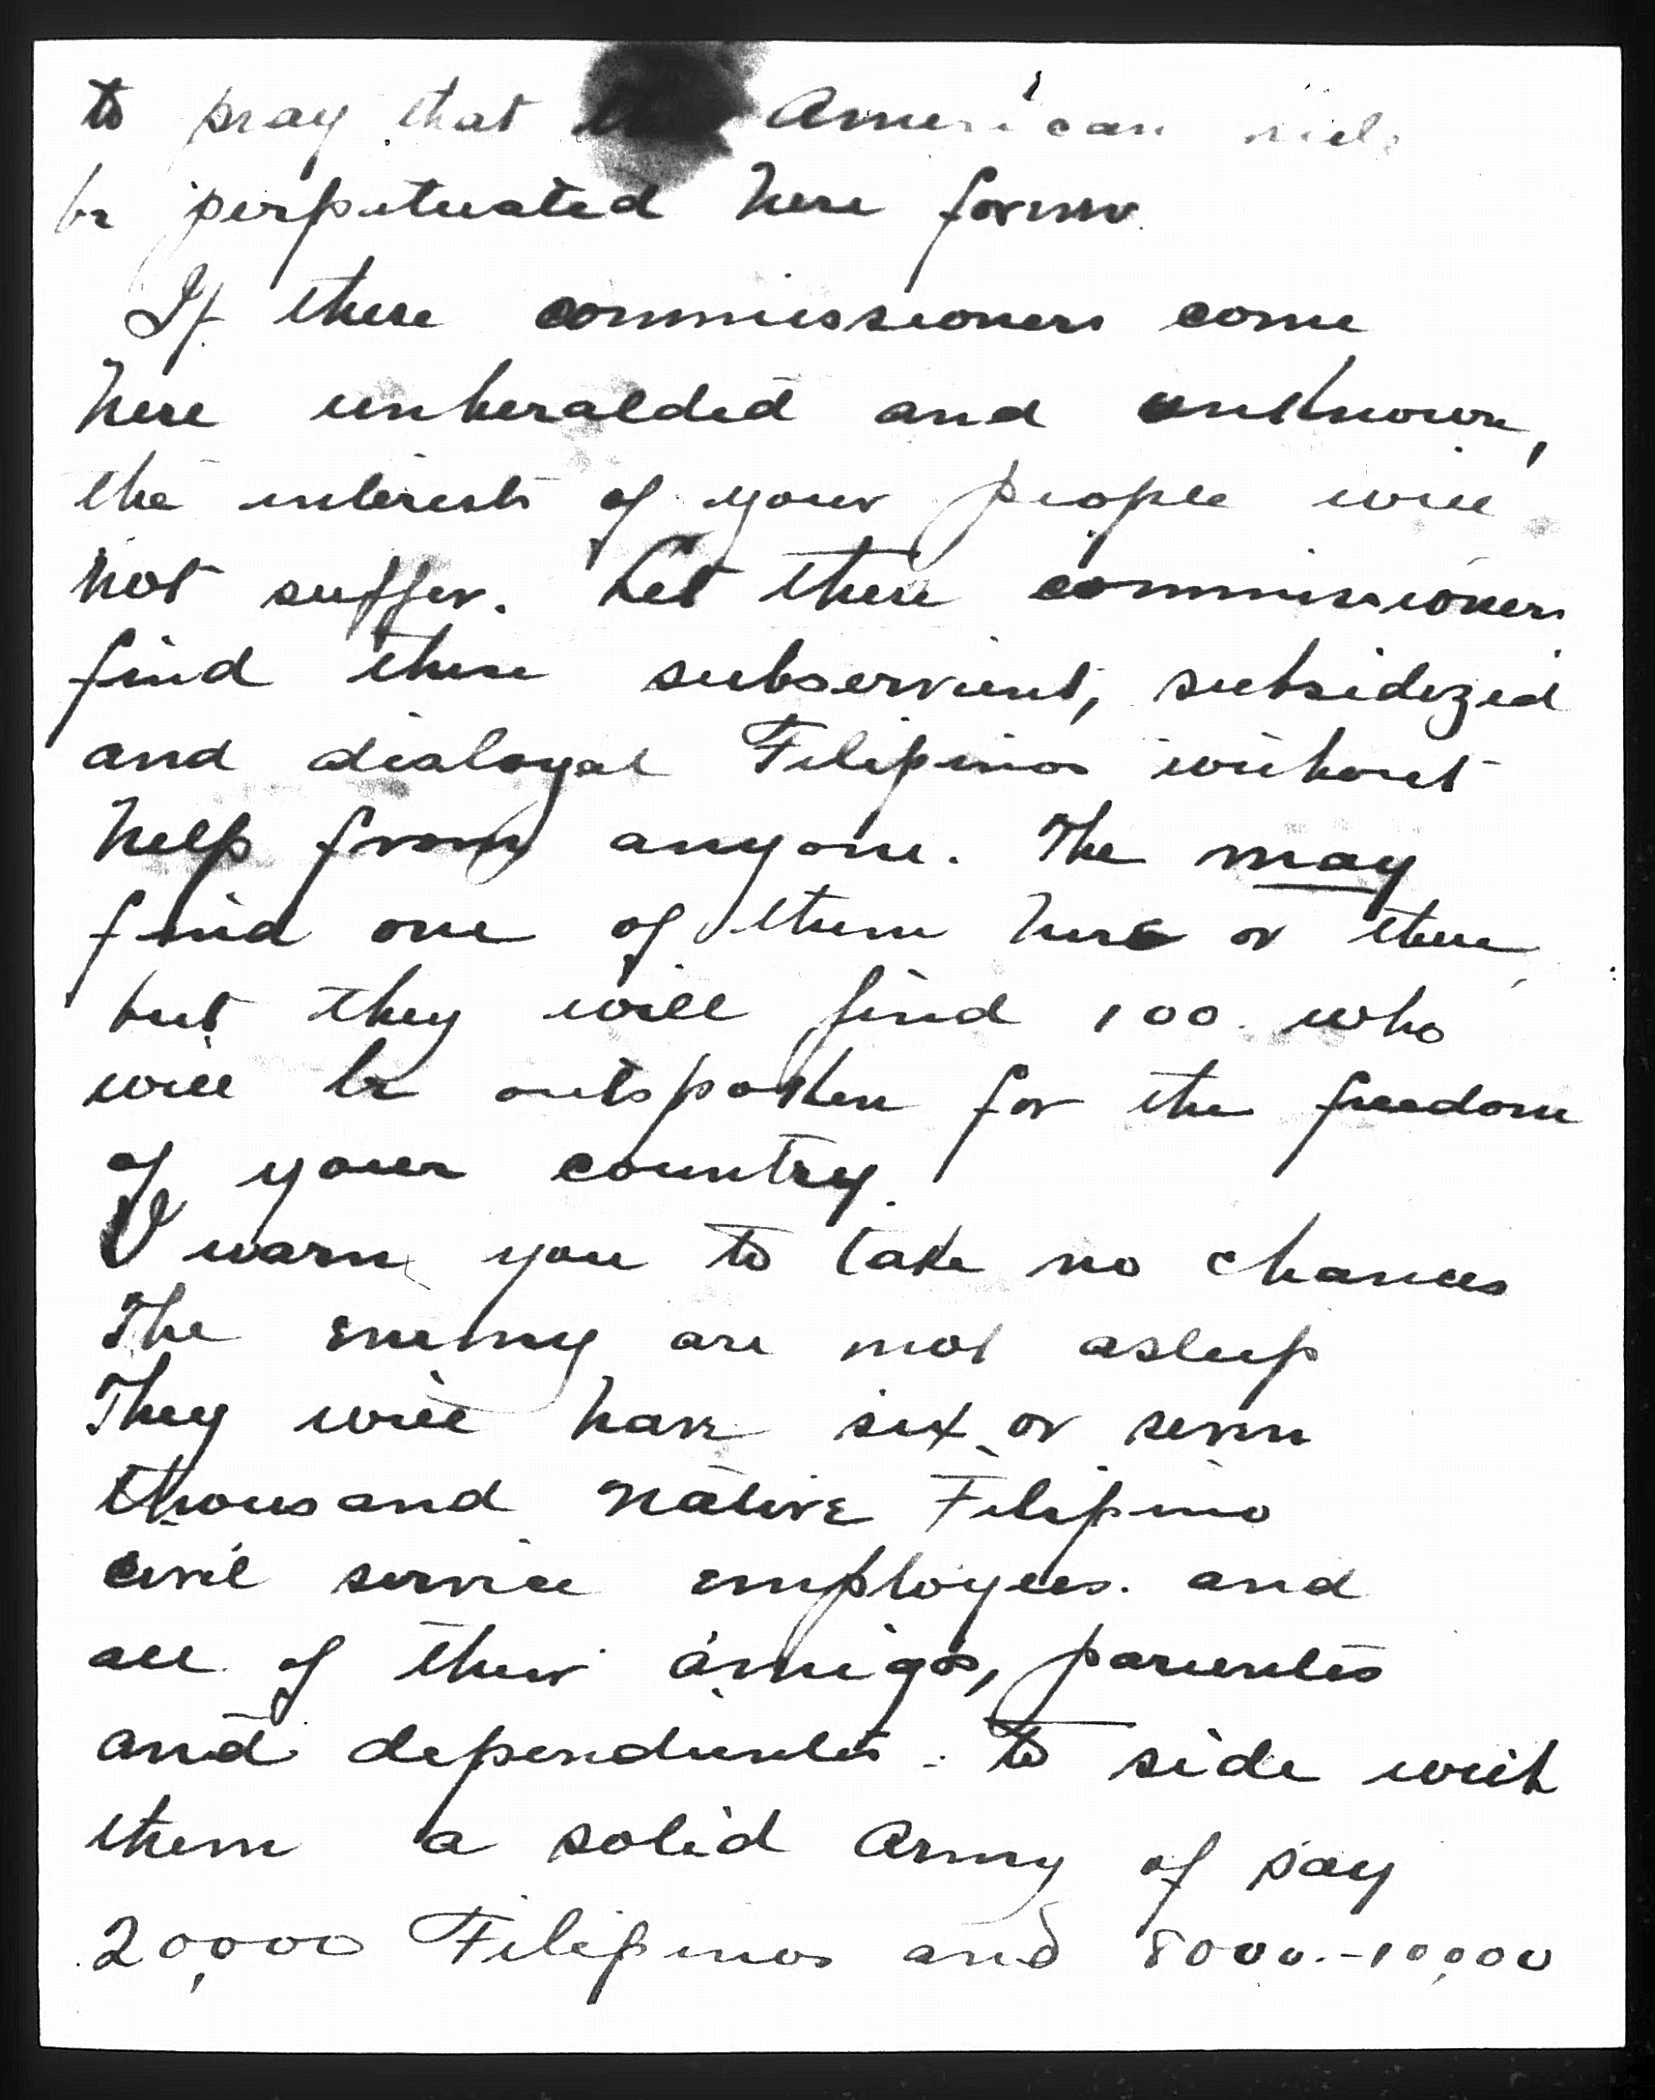 to pray that the American rule
be perpetuated here forever.
If these commissioners come
here unheralded and unknown,
the interests of your people will
not suffer. Let these commissioners
find these subservient, subsidized
and disloyal Filipinos without
help from anyone. The may
find one of them here or there
but they will find 100 who
will be outspoken for the freedom
of your country.
I warn you to take no chances
The enemy are not asleep
They will have six or seven
thousand native Filipino
civil service employees. and
all of their amigos, parientes
and dependientes. to side with
them a solid army of say
20,000 Filipinos and 8000.-10,000